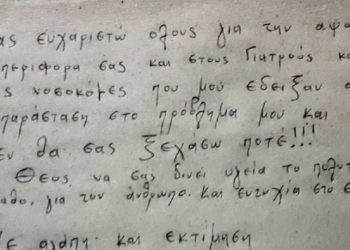 ας ευχαριστώ ολους για την αψο
περιφορα σας και στους Γιατρούς κα
ς νοσοκόμες που μου εδειξαν σ
παράσταση στο πρόβλημα μου και
εν θα σας ξεχάσω ποτέ!!!
Θεος να σας δινει υγεια το πολυτ
αθο, για τον άνθρωπο. Και ευτυχία στο ε
ε αγάπη και εκτίμηση